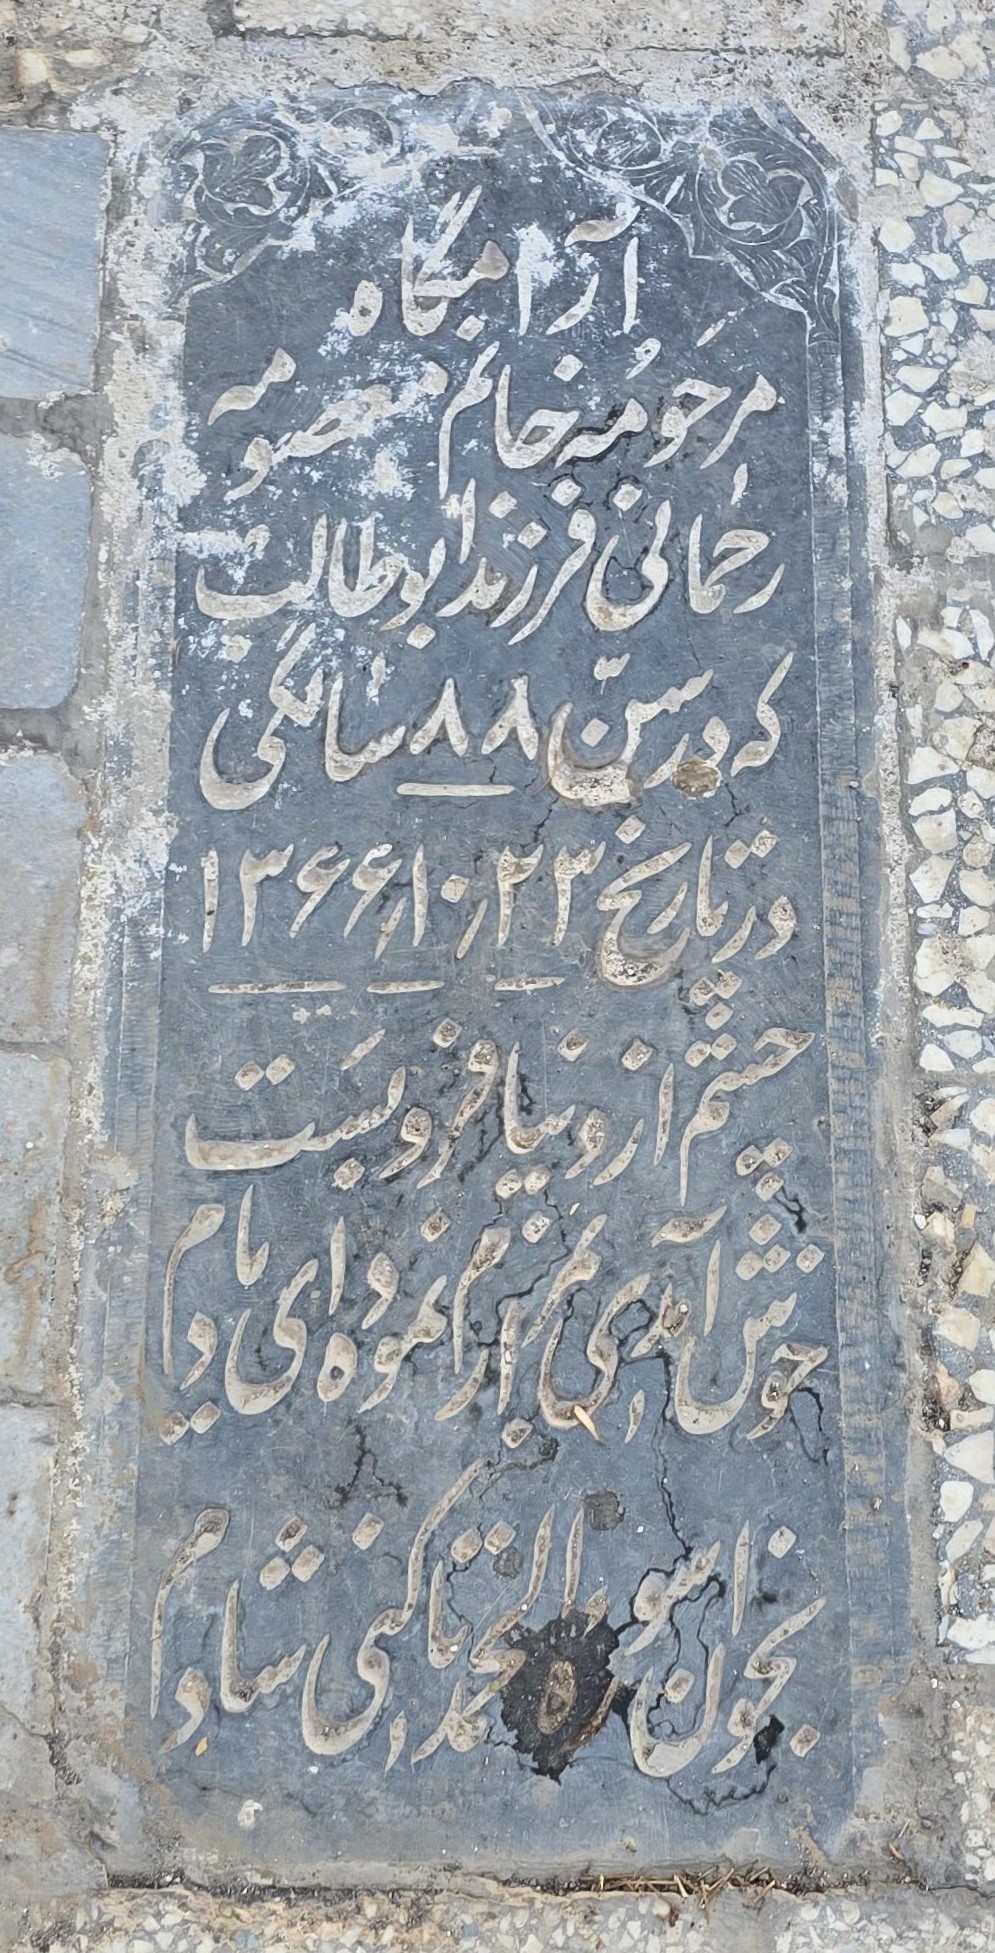 آرامگاه
مرحَومُه خانم معصومه
رحمانی فرزند ابوطالب
که در سنّ ۸۸ سالگی
در تاریخ ۱۳۶۶/۱۰/۲۳
چشم از دنیا فروبَست
خوش آمدی بمزارم نموده ای یادم
بخوان سوره الحمد تا کنی شادم